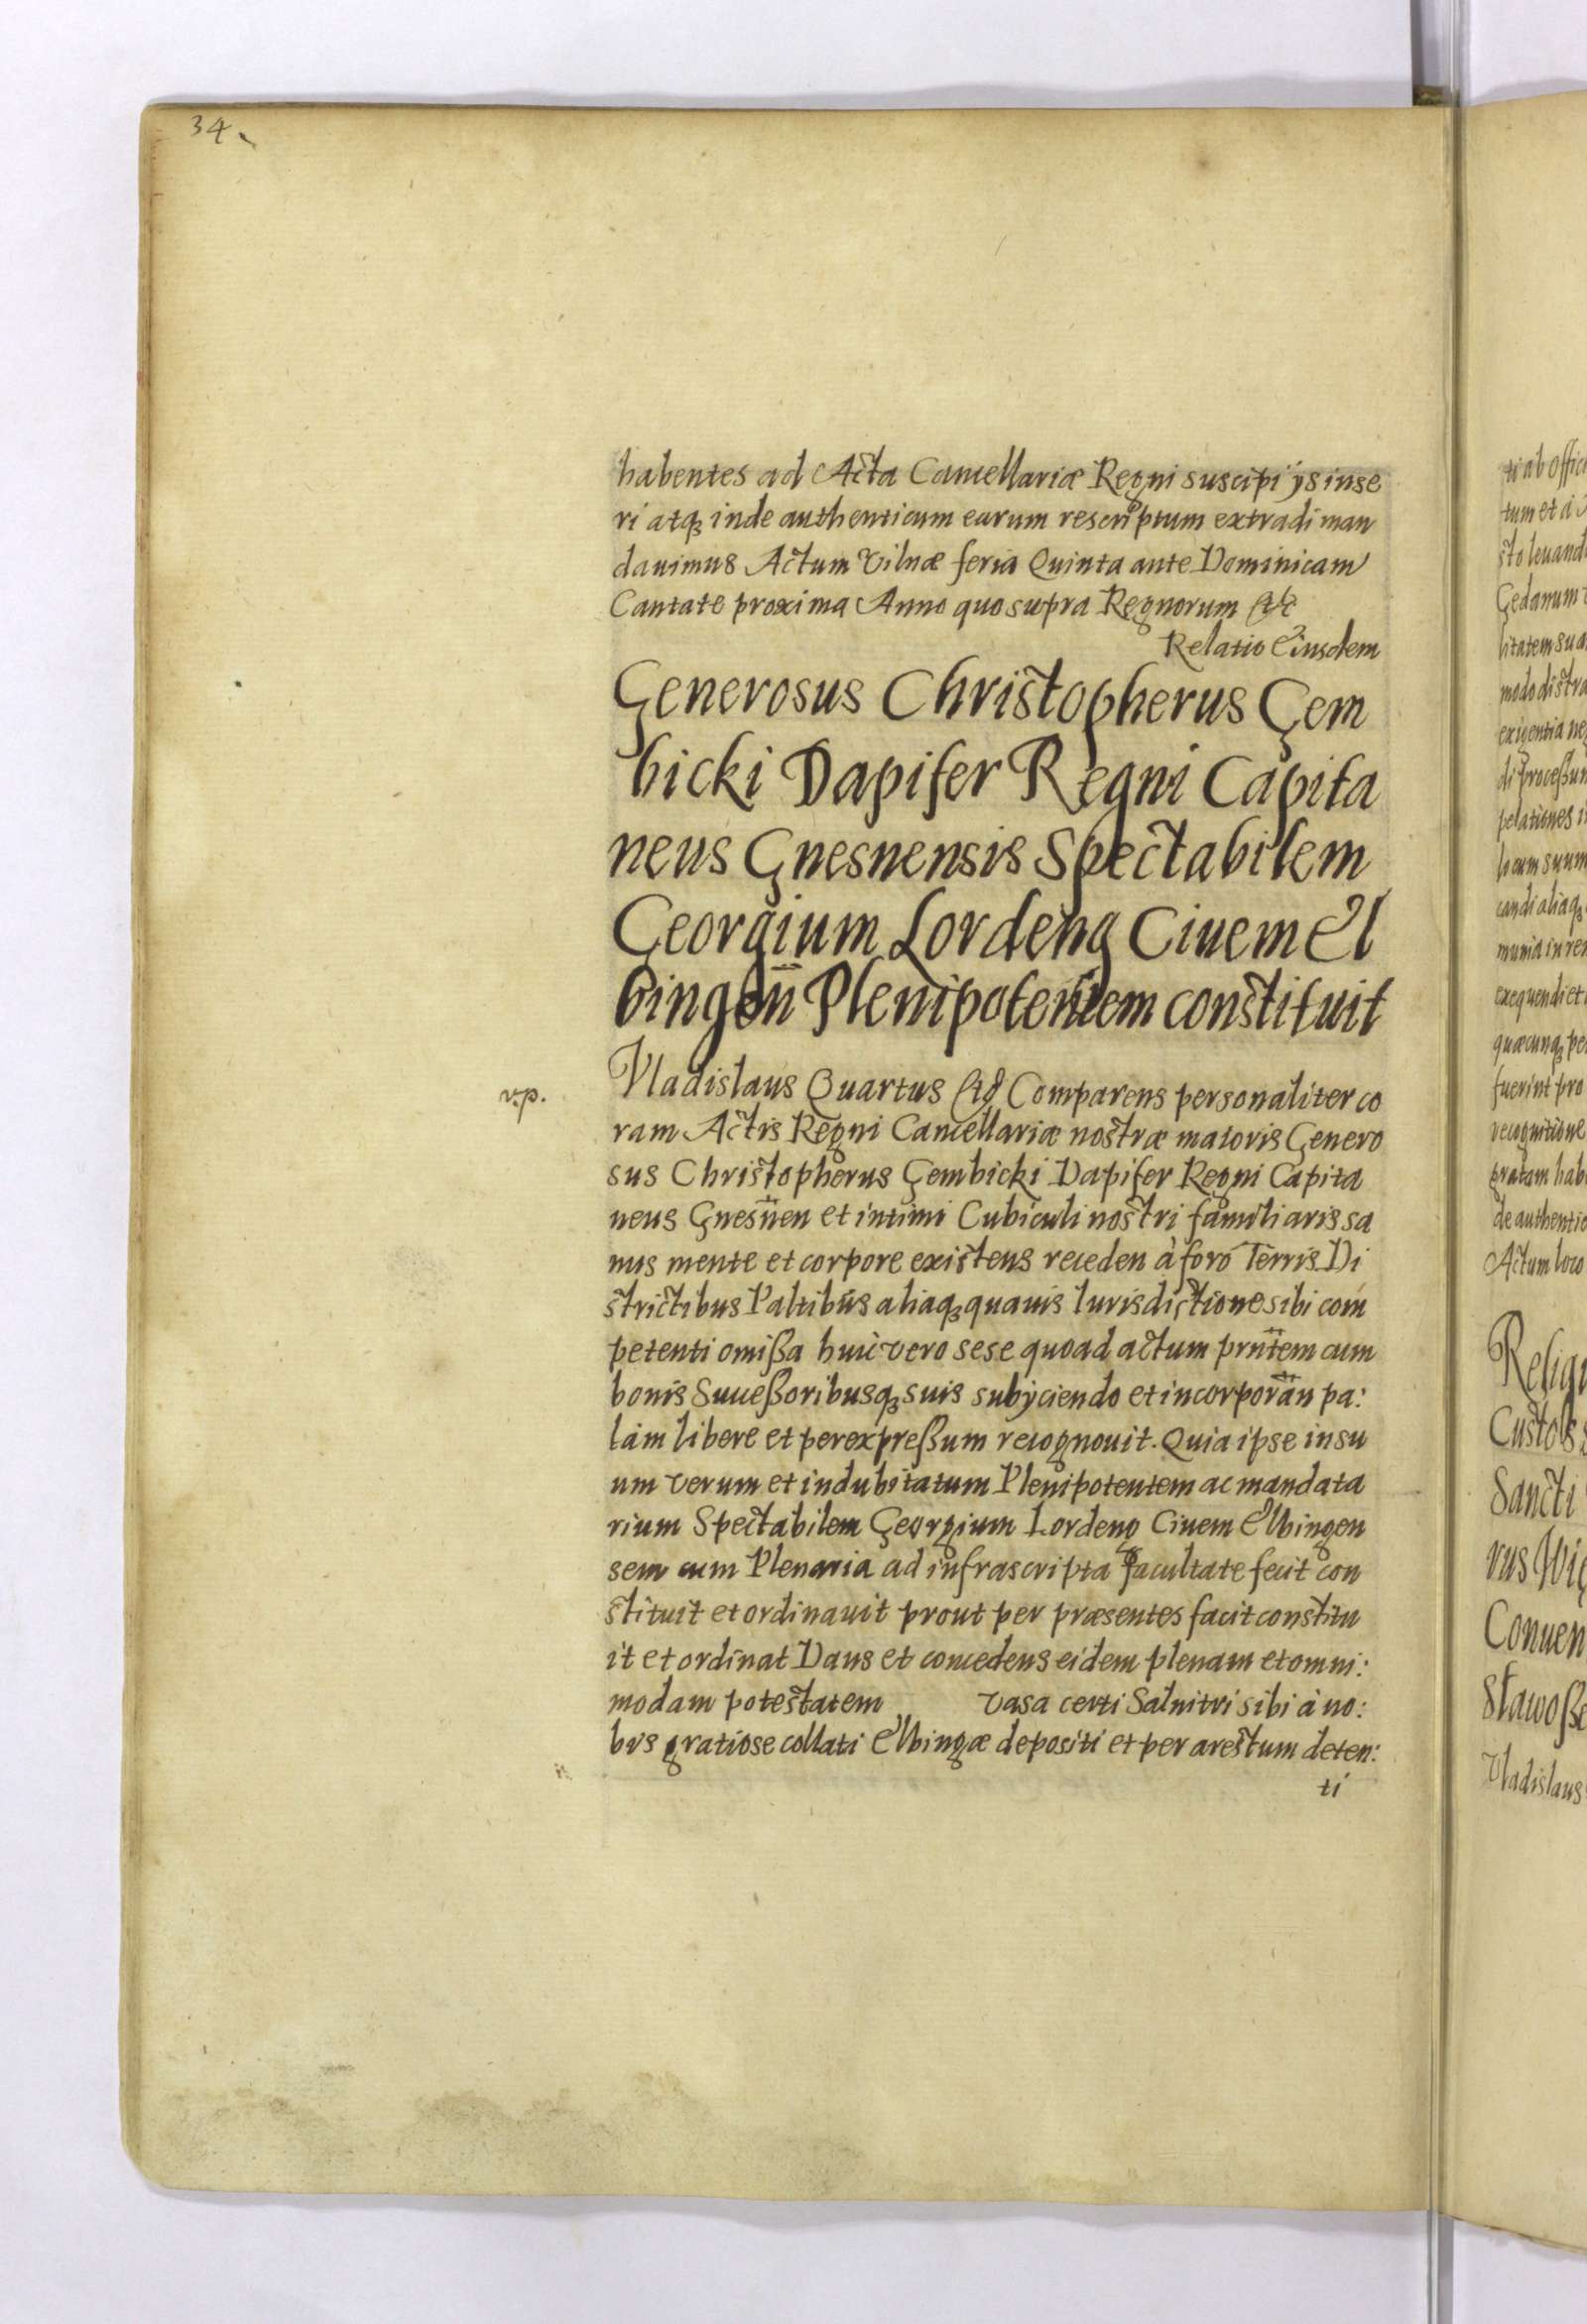 34.
habentes ad Acta Cancellariæ Regni suscipi ijs inse
ri atq3 inde authenticum earum rescriptum extradi man
dauimus Actum Vilnæ feria Quinta ante Dominicam
Cantate proxima Anno quo supra Regnorum etc
Relatio Eiusdem
Generosus Christopherus Gem
bicki Dapifer Regni Capita
neus Gnesnensis Spectabilem
Georgium Lordeng Ciuem El
bingen̄ Plenipotentem constituit
v.p.
Vladislaus Quartus etc Comparens personaliter co
ram Actis Regni Cancellariæ nostræ maioris Genero
sus Christopherus Gembicki Dapifer Regni Capita
neus Gnesn̄en et intimi Cubiculi nostri familiaris sa
nus mente et corpore existens receden à foro Terris Di
strictibus Paltibūs aliaq3 quauis Iurisdictione sibi com
petenti omißa huic vero sese quoad actum prn̄tem cum
bonis Succeßoribusq3 suis subijciendo et incorporān pa:
lam libere et per expreßum recognouit. Quia ipse in su
um verum et indubitatum Plenipotentem ac mandata
rium Spectabilem Georgium Lordeng Ciuem Elbingen
sem cum Plenaria ad infrascripta facultate fecit con
stituit et ordinauit prout per præsentes facit constitu
it et ordinat Dans et concedens eidem plenam et omni:
modam potestatem vasa certi Salnitri sibi à no:
bis gratiose collati Elbingæ depositi et per arestum deten:
ti
ti ab offici
tum et à
sto leuand
Gedanum
litatem sua
modo distra
exigentia ne
di proceßun
pelationes i
locum suum
candi aliaq3
munia in re
exequendi et
quæcunq3 pe
fuerint pro
recognitione
gratam hab
de authentic
Actum loco
Religi
Custos
Sancti
rus Wię
Conuen
Stawoße
Vladislaus